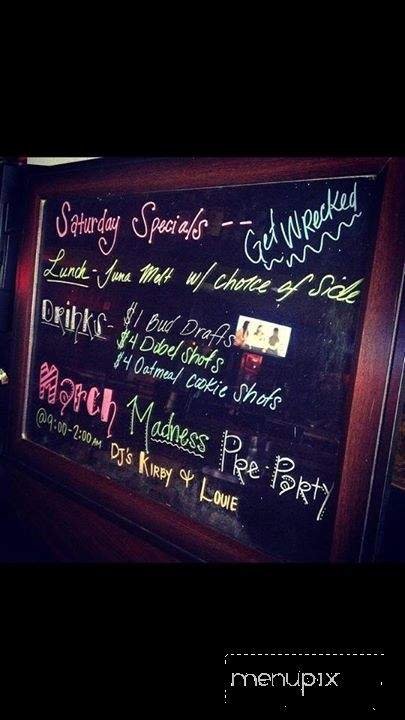 Saturday Specials --
Get Wrecked
Lunch - Tuna Melt w/ choice of Side
Drinks - $1 Bud Drafts
$4 Dubel Shots
$4 Oatmeal Cookie Shots
March Madness Pre-Party
@9:00-2:00AM
DJ's Kirby & Louie
menupix